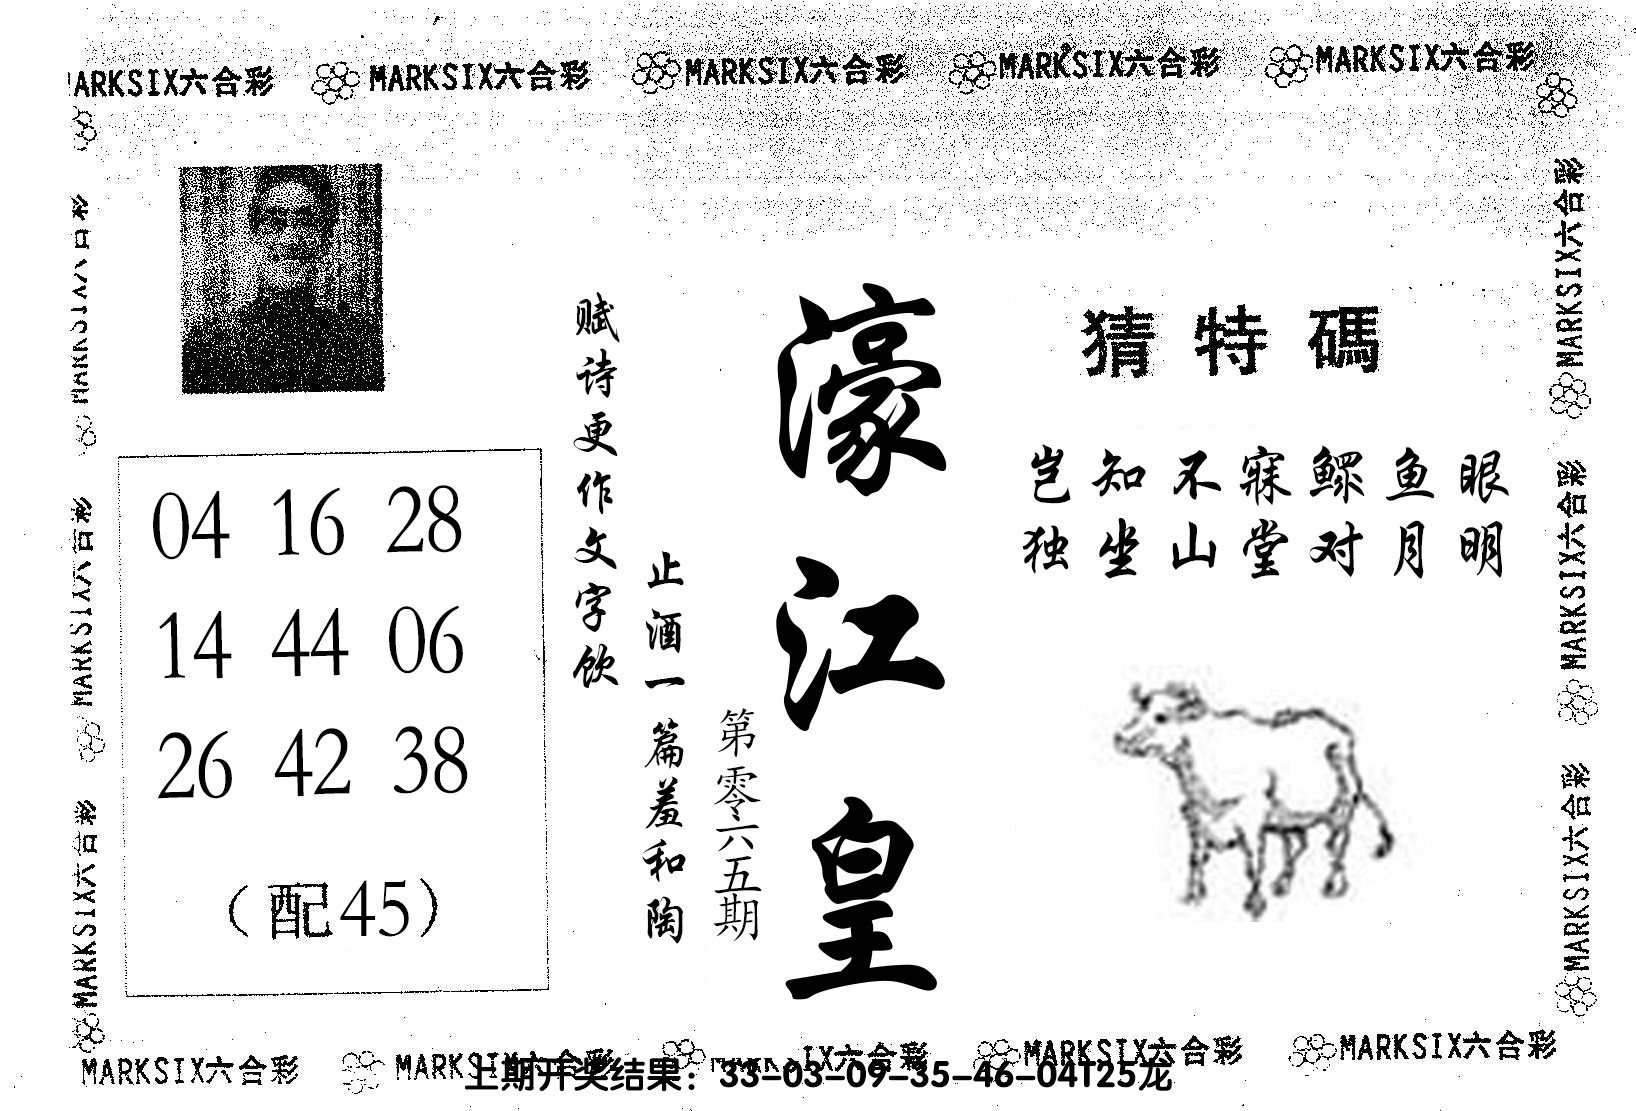 MARKSIX六合彩 MARKSIX六合彩 MARKSIX六合彩 MARKSIX六合彩 MARKSIX六合彩
猜特碼
岂知不寐鳏鱼眼
独坐山堂对月明
濠江皇
第零六五期
赋诗更作文字饮
止酒一篇羞和陶
04 16 28
14 44 06
26 42 38
（配45）
MARKSIX六合彩
MARKSIX六合彩
MARKSIX六合彩
MARKSIX六合彩
MARKSIX六合彩
MARKSIX六合彩
MARKSIX六合彩 MARKSIX六合彩 MARKSIX六合彩 MARKSIX六合彩
上期开奖结果：33-03-09-35-46-04T25龙